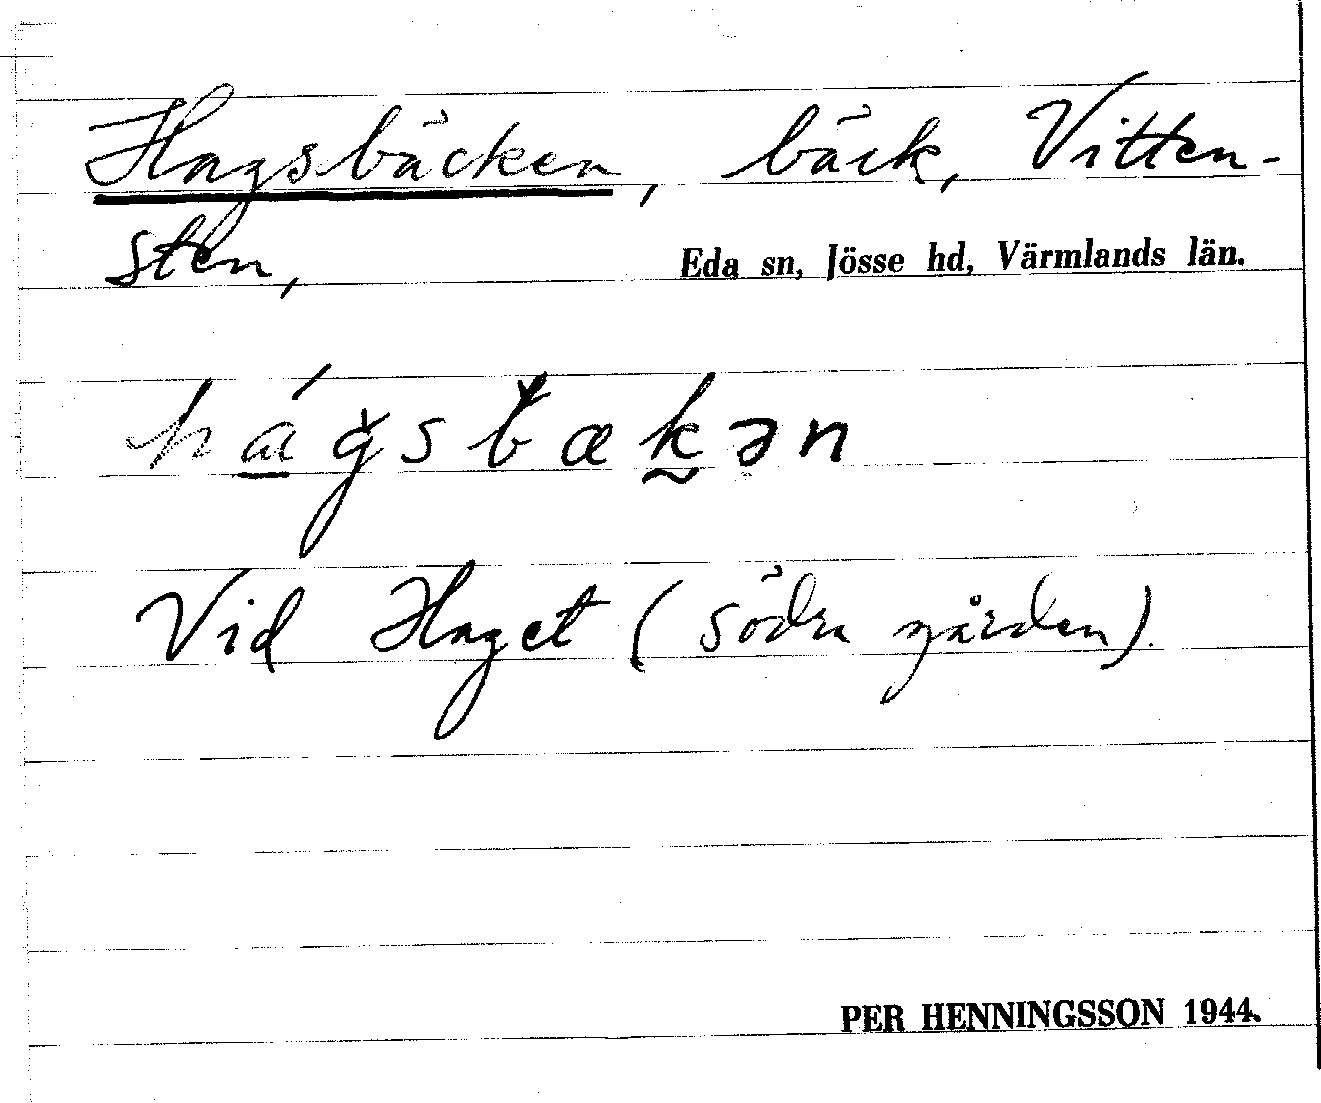 Hagsbäcken, bäck, Vitten-
sten,
Eda sn, Jösse hd, Värmlands län.
Vid Haget (södra gården).
PER HENNINGSSON 1944.